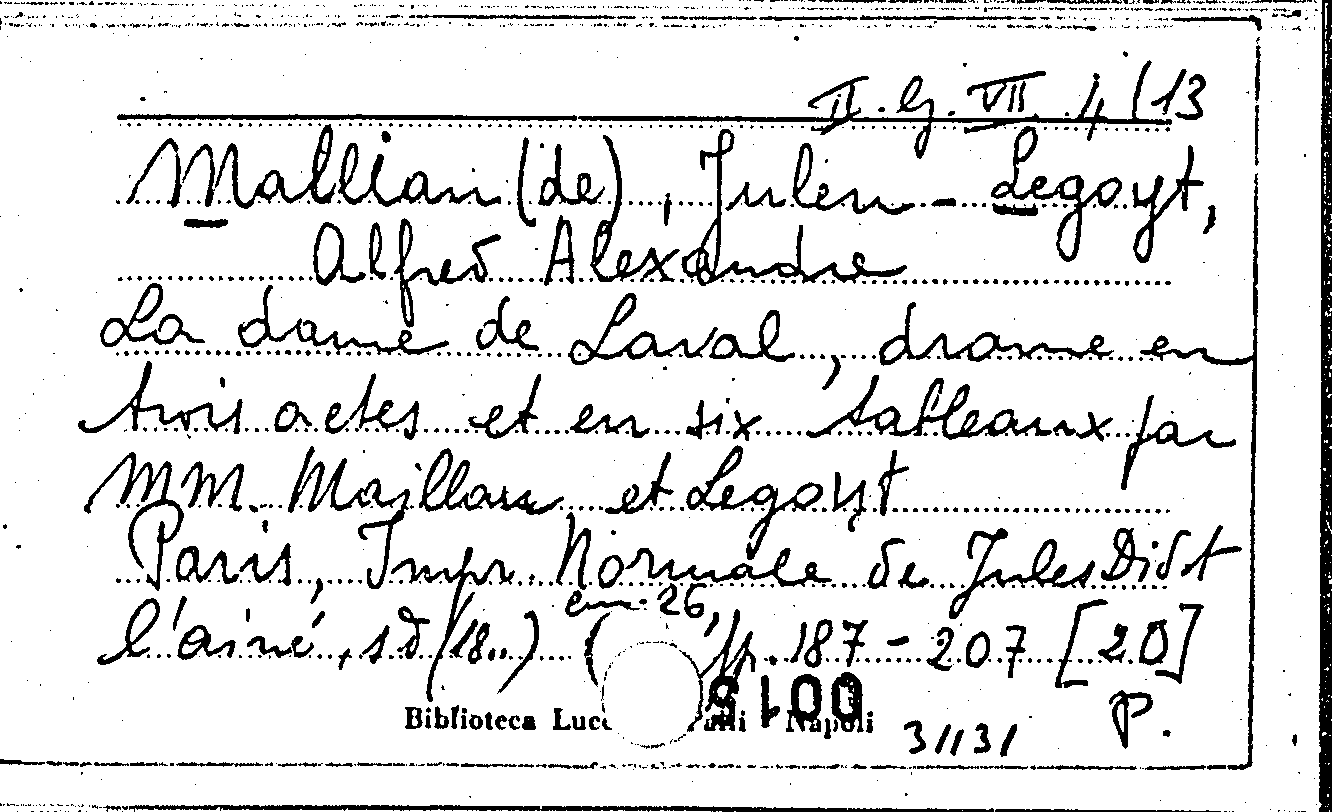 II. G. VII. 4/13
Mallian (de), Julien - Legoyt,
Alfred Alexandre
La dame de Laval, drame en
trois actes et en six tableaux par
MM. Maillan et Legoyt
Paris, Impr. Normale de Jules Didt
l'ainé, sd (18..) ( cm. 26, pp. 187-207 [20]
Biblioteca Napoli
31131 P.